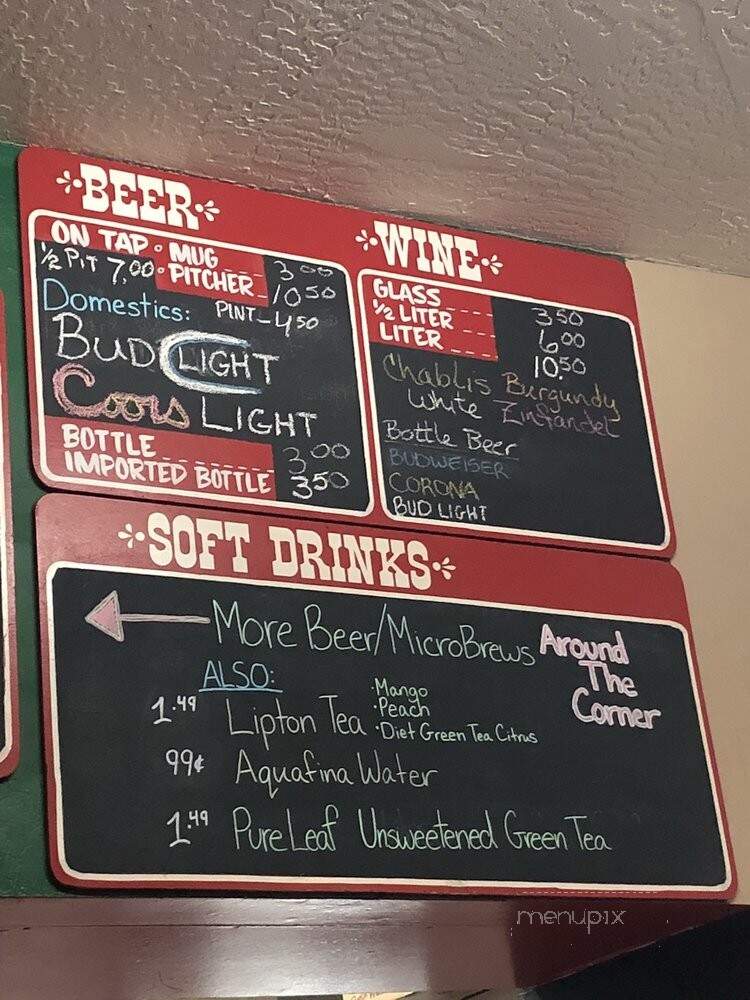 BEER
ON TAP • MUG 3 00
½ PIT 7.00 • PITCHER 10 50
Domestics: PINT - 4 50
BUD LIGHT
Coors LIGHT
BOTTLE 3 00
IMPORTED BOTTLE 3 50
WINE
GLASS 3 50
½ LITER 6 00
LITER 10.50
Chablis Burgundy
White Zinfandel
Bottle Beer
BUDWEISER
CORONA
BUD LIGHT
SOFT DRINKS
More Beer/MicroBrews Around The Corner
ALSO:
1.49 Lipton Tea
• Mango
• Peach
• Diet Green Tea Citrus
99¢ Aquafina Water
1.49 Pure Leaf Unsweetened Green Tea
menupix